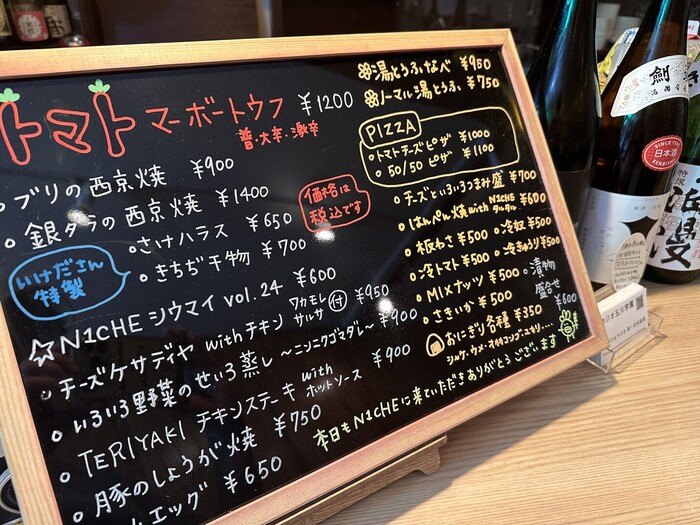 トマト マーボートウフ ¥1200
普・大辛・激辛
ブリの西京焼 ¥900
銀ダラの西京焼 ¥1400
さけハラス ¥650
きちぢ干物 ¥700
いけださん
特製
価格は
税込です
☆N1CHE シウマイ vol.24 ¥600
チーズケサディヤ with チキン ワカモレ サルサ 付 ¥950
いろいろ野菜のせいろ蒸し 〜ニンニクゴマダレ〜 ¥900
TERIYAKI チキンステーキ with ホットソース ¥900
豚のしょうが焼 ¥750
エッグ ¥650
湯とうふなべ ¥950
ノーマル湯とうふ ¥750
PIZZA
・トマトチーズピザ ¥1000
・50/50 ピザ ¥1100
チーズといろいろつまみ盛 ¥900
はんぺん焼 with N1CHE タルタル ¥600
板わさ ¥500
冷奴 ¥500
冷トマト ¥500
冷きゅうり ¥500
MIXナッツ ¥500
漬物
盛合せ
¥600
さきいか ¥500
おにぎり各種 ¥350
シャケ・ウメ・オカカ・コンブ・ユカリ....
本日もN1CHEに来ていただきありがとうございます
劍
SINCE 1973
日本酒